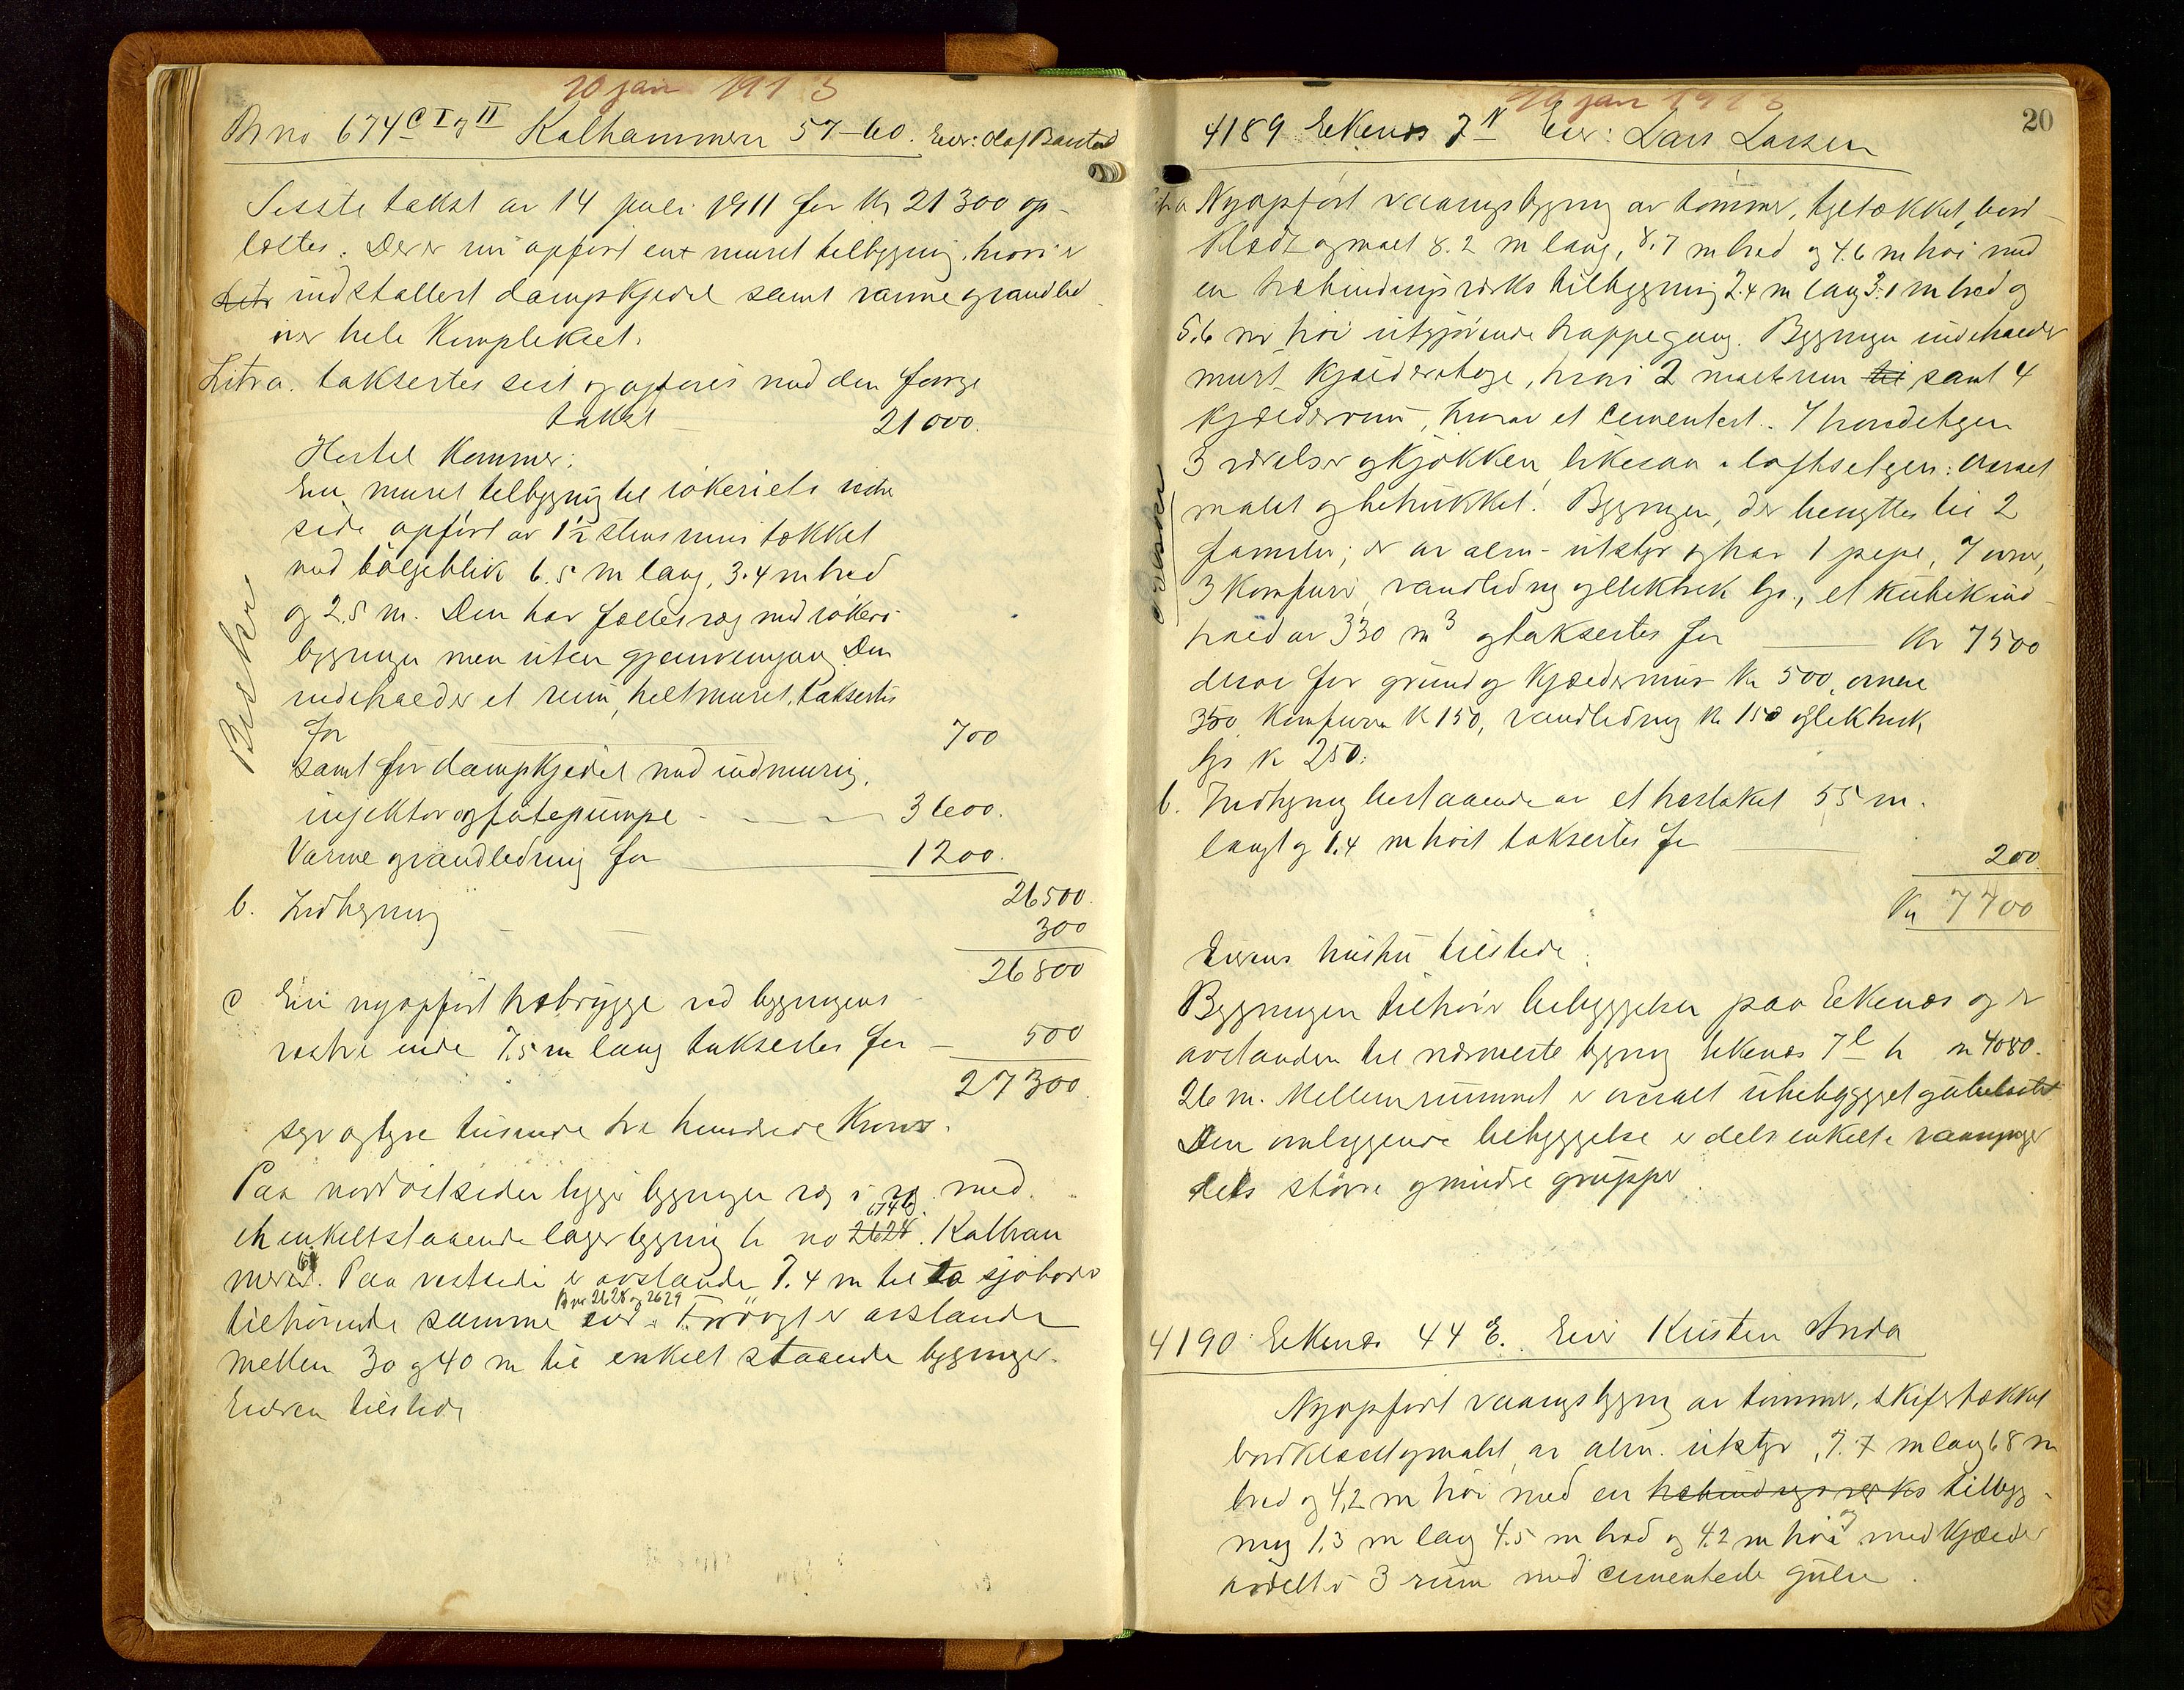 20 jan 1913
Br no 674 C I og II Kalhammeren 57-60. Eier: Olaf Barstad
Siste takst av 14 juli 1911 for Kr 21 300 op-
løstes. Der er nu opført en muret tilbygning, hvori er
indstallert dampkjedel samt varme og vandled
over hele Komplekset.
Litra. taksertes sist og opføres med den forrige
takst 21000.
Hertil Kommer:
En muret tilbygning til røkeriets vestre
side opført av 1½ stens mur tækket
med bølgeblik 6.5 m lang, 3.4 m bred
og 2.5 m. Den har fælles væg med røkeri
bygningen men uten gjennemgang. Den
indeholder et rum, helt muret, taksertes
for 700
samt for dampkjedel med indmuring,
injektor og fødepumpe 3600.
Varme og vandledning for 1200.
26500.
b. Indhegning 300
26800
c En nyopført træbrygge ved bygningens
vestre ende 7.5 m lang taksertes for 500
27300.
syv og tyve tusende tre hundrede Kroner.
Paa nordøstsiden ligger bygningen væg i væg med
et enkeltstaaende lagerbygning br no 2628. 674 b Kalham
meren 61. Paa vestsiden er avstanden 7.4 m til to sjøboder
Br nr 2628 og 2629
tilhørende samme eier. Forøvrigt er avstanden
mellem 30 og 40 m til enkelt staaende bygninger.
Eieren tilstede
Besøker
20 jan 1913
20
4189 Eekenæs 7 N Eier: Lars Larsen
Litr a Nyopført vaaningsbygning av tømmer, tegltækket, bord-
klædt og malt 8.2 m lang, 8.7 m bred og 4.6 m høi med
en træbindingsverks tilbygning 2.4 m lang 3.1 m bred og
5.6 m høi utgjørende trappegang. Bygningen indeholder
muret kjælderetage, hvori 2 malte rum til samt 4
kjælderrum, hvorav et cementert. I hovedetagen
3 værelser og kjøkken likesaa i loftsetagen: Overalt
malet og betrukket. Bygningen, der benyttes til 2
familier, er av alm- utstyr og har 1 pipe, 7 ovner,
3 komfurer, vandledning og elektrisk lys, et kubikind-
hold av 330 m3 og taksertes for Kr 7500
derav for grund og kjældermur Kr 500, ovnene
350, Komfurene K 150, vandledning Kr 150 og elektrisk
lys K 250.
b. Indhegning bestaaende av et træstaket 55 m.
langt og 1.4 m høit taksertes for 200
Kr 7700
Eierens hustru tilstede.
Bygningen tilhører bebyggelsen paa Eekenæs og er
avstanden til nærmeste bygning Eekenæs 7 l br nr 4080.
26 m. Mellemrummet er overalt ubebygget og ubelastet
Den omliggende bebyggelse er dels enkelte vaaninger
dels større og mindre grupper.
4190 Eekenæs 44 E. Eier Kristen Anda
Nyopført vaaningsbygning av tømmer, skifertækket
bordklædt og malet, av alm. utstyr, 7.7 m lang 6.8 m
bred og 4,2 m høi med en træbindingsverks tilbyg-
ning 1.3 m lang 4.5 m bred og 4.2 m høi og med kjælder
avdelt i 3 rum med cementerte gulve.